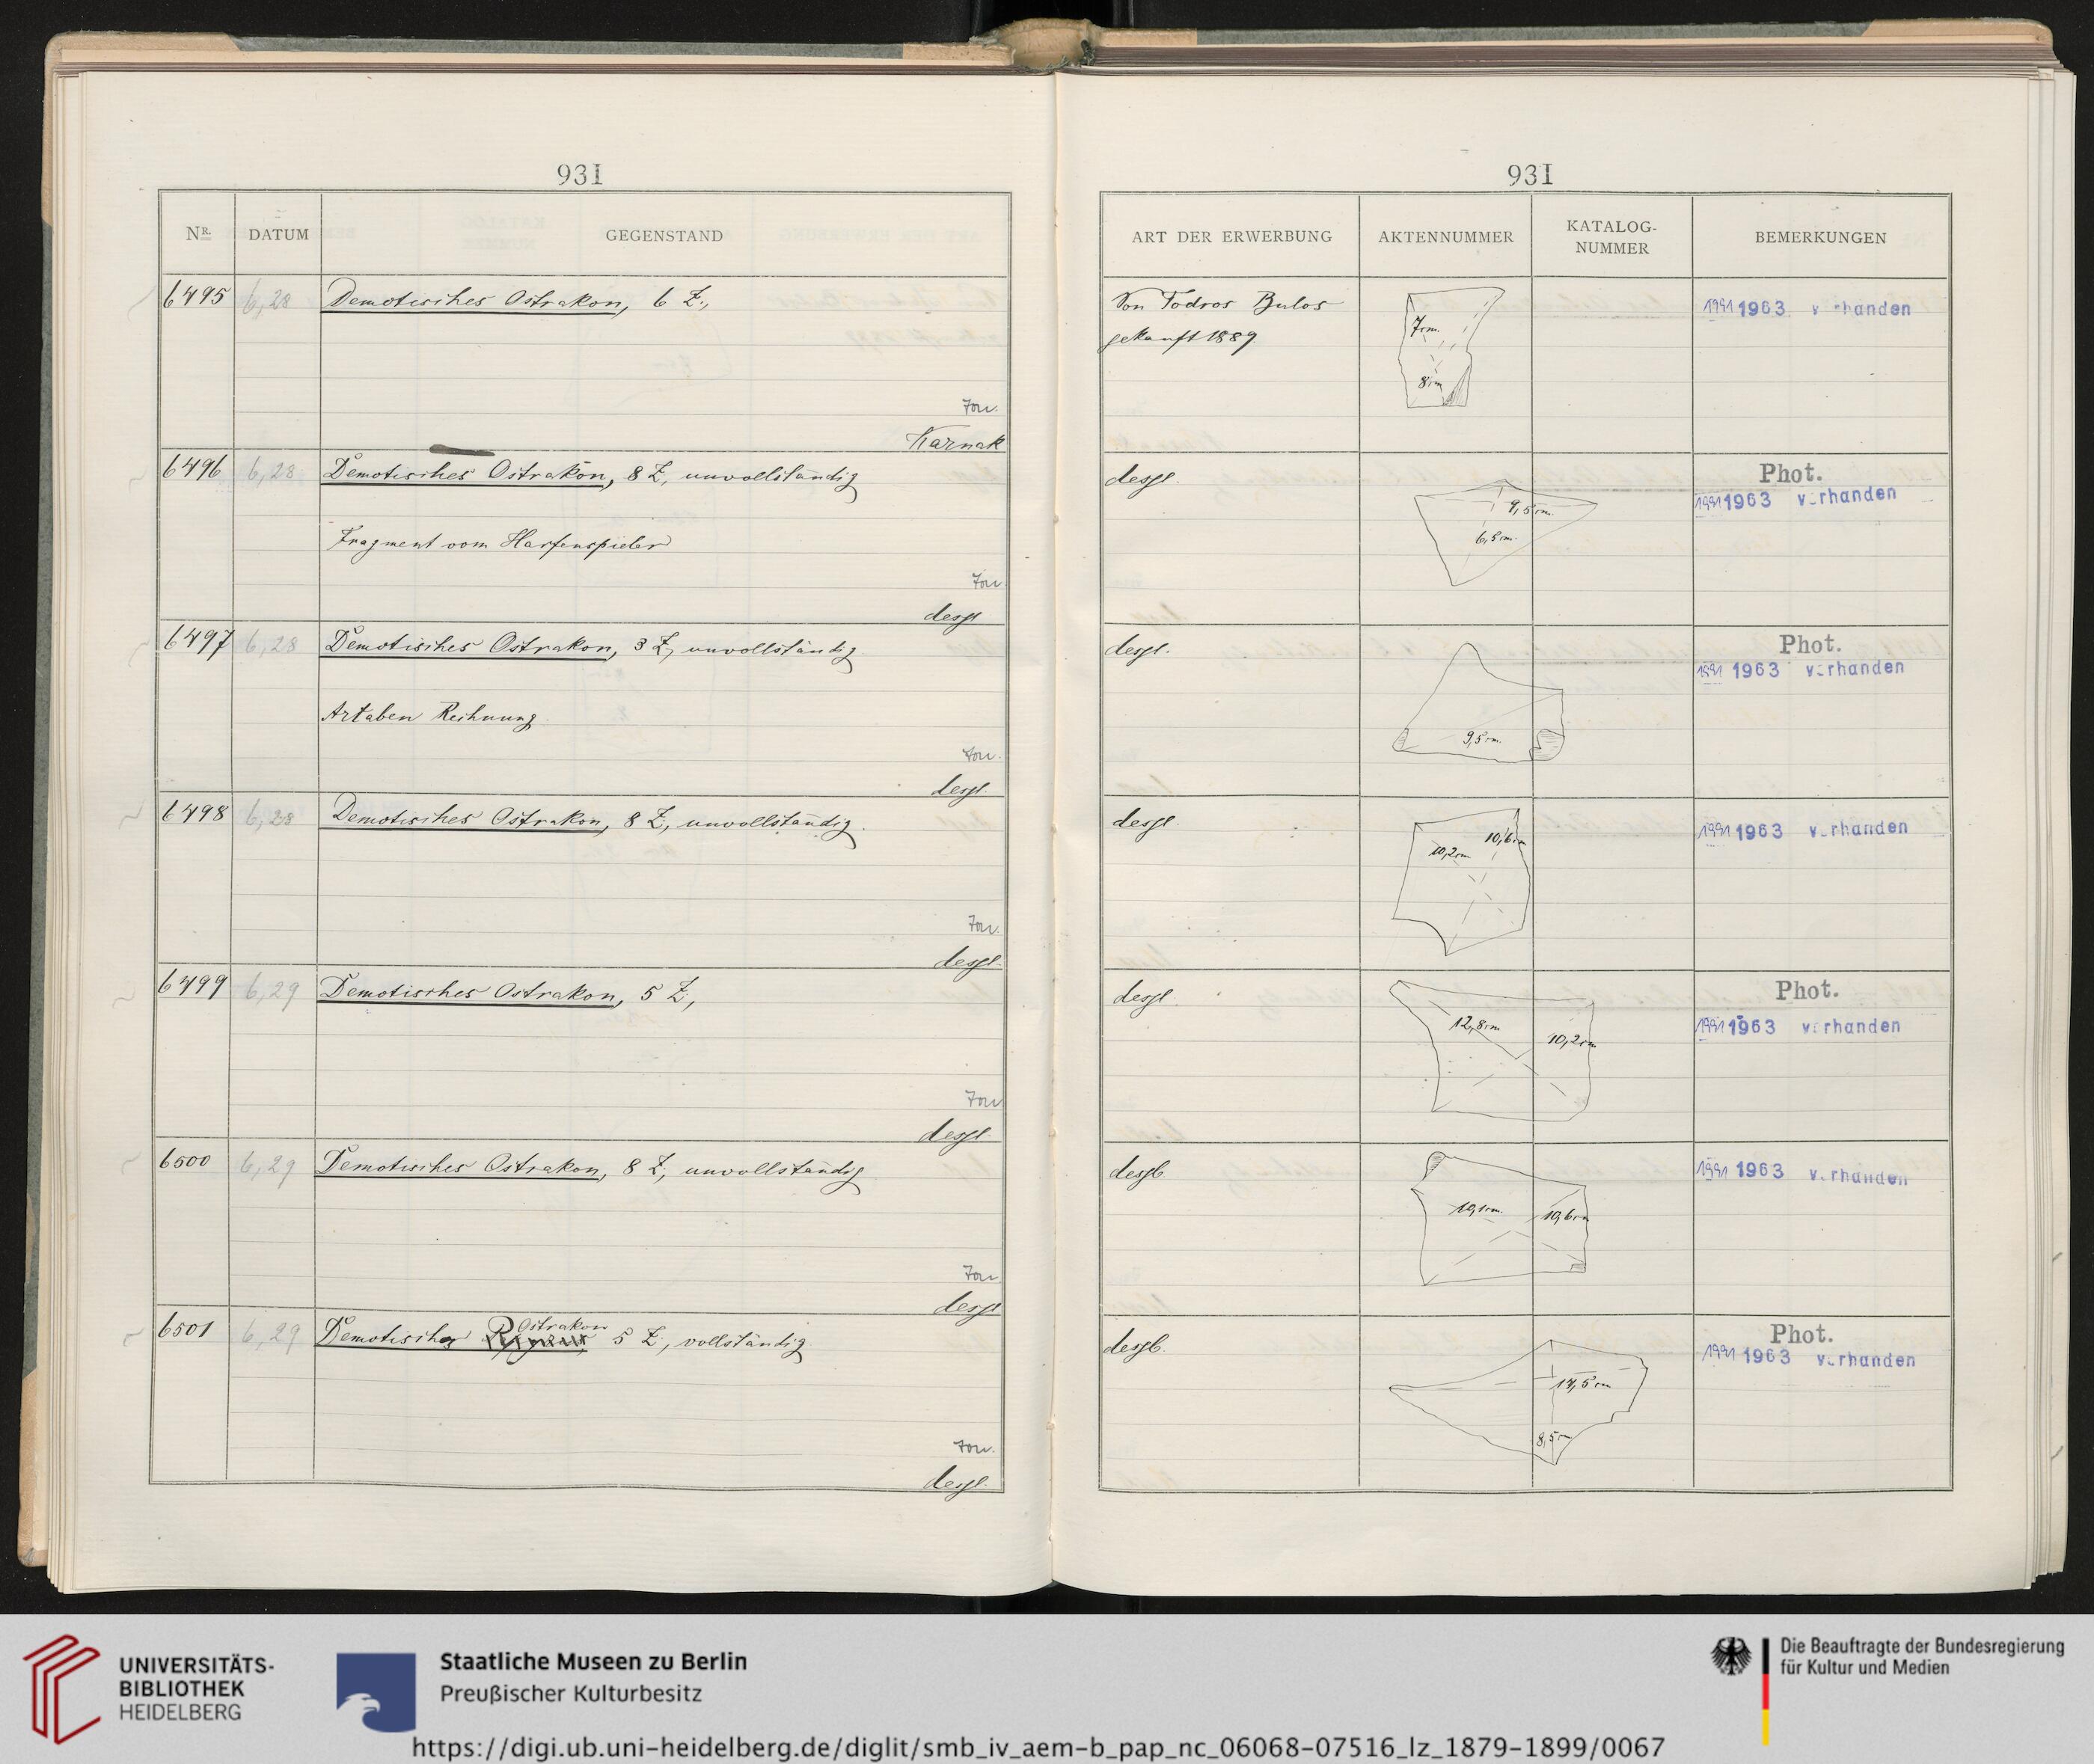 931
Nr. DATUM GEGENSTAND
6495 6,28 Demotisches Ostrakon, 6 Z.,
Ton.
Karnak
6496 6,28 Demotisches Ostrakon, 8 Z., unvollständig
Fragment vom Harfenspieler
Ton
desgl
6497 6,28 Demotisches Ostrakon, 3 Z., unvollständig
Artaben Rechnung.
Ton.
desgl.
6498 6,28 Demotisches Ostrakon, 8 Z., unvollständig.
Ton.
desgl.
6499 6,29 Demotisches Ostrakon, 5 Z.,
Ton
desgl.
6500 6,29 Demotisches Ostrakon, 8 Z., unvollständig
Ton
desgl
6501 6,29 Demotisches Ostrakon 5 Z., vollständig
Ton.
desgl.
931
ART DER ERWERBUNG AKTENNUMMER KATALOG-NUMMER BEMERKUNGEN
Von Todros Bulos
gekauft 1889
7cm.
8cm
1991 1963 vorhanden
desgl.
9,5cm.
6,5cm.
Phot.
1991 1963 vorhanden
desgl.
9,5cm.
Phot.
1991 1963 vorhanden
desgl.
10,2cm
10,6cm
1991 1963 vorhanden
desgl.
12,8cm
10,2cm
Phot.
1991 1963 vorhanden
desgl.
10,1cm.
10,6cm
1991 1963 vorhanden
desgl.
14,5cm
8,5cm
Phot.
1991 1963 vorhanden
UNIVERSITÄTS-
BIBLIOTHEK
HEIDELBERG
Staatliche Museen zu Berlin
Preußischer Kulturbesitz
Die Beauftragte der Bundesregierung
für Kultur und Medien
https://digi.ub.uni-heidelberg.de/diglit/smb_iv_aem-b_pap_nc_06068-07516_lz_1879-1899/0067